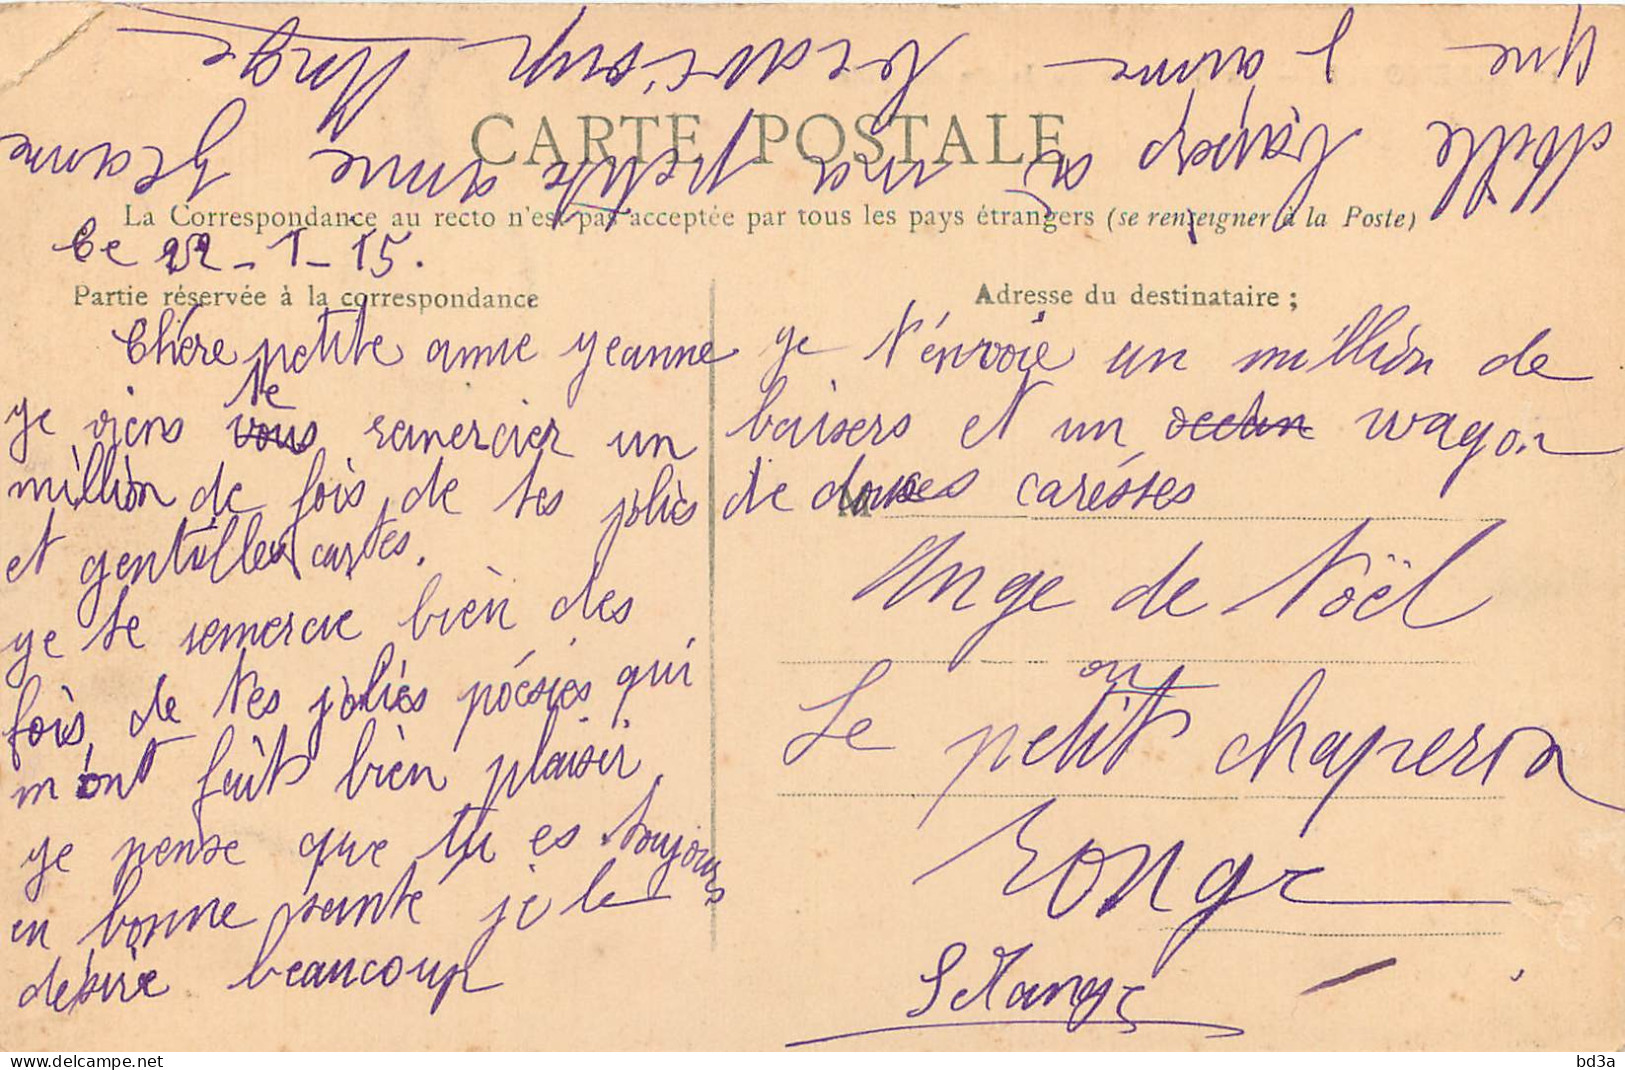 CARTE POSTALE
La Correspondance au recto n'est pas acceptée par tous les pays étrangers (se renseigner à la Poste)
Ce 22-1-15.
Partie réservée à la correspondance
Chère petite amie yeanne
ye viens te remercier un
million de fois de tes jolies
et gentilles cartes.
ye te remercie bien des
fois de tes jolies poésies qui
m'ont fait bien plaisir
ye pense que tu es toujours
en bonne sante je le
désire beaucoup
Adresse du destinataire ;
ye t'envoie un million de
baisers et un wagon
de douces caresses
Ange de Noël
ou
Le petit chaperon
rouge
Mille baisers à ma petite amie Jeanne
que j'aime beaucoup Ange
delcampe.net
bd3a